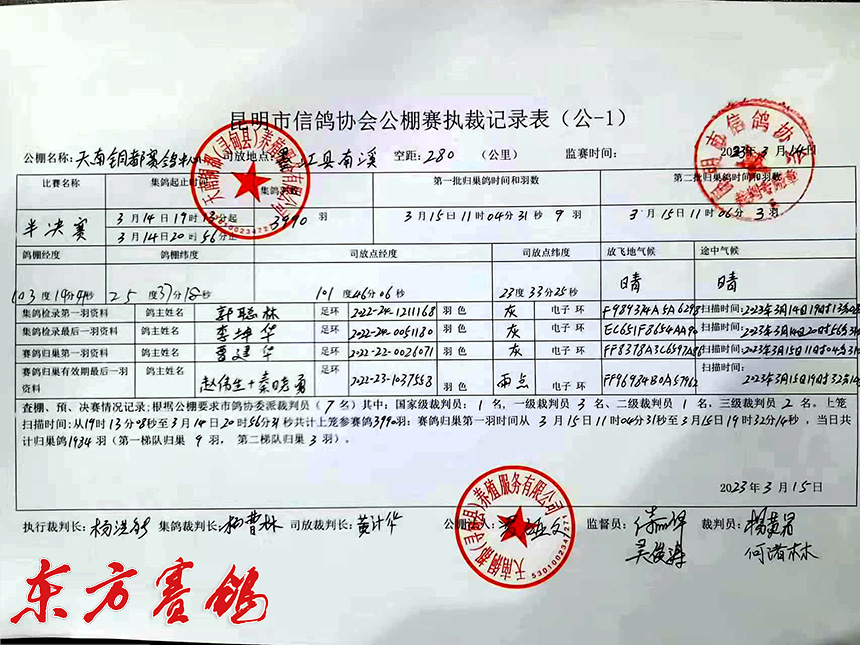 昆明市信鸽协会公棚赛执裁记录表（公-1）
公棚名称：天南铜都赛鸽 司放地点：墨江县南溪 空距：280 （公里） 监赛时间： 2023年3月14日
比赛名称 集鸽起止时间 集鸽羽数 第一批归巢鸽时间和羽数 第二批归巢鸽时间和羽数
半决赛 3月14日19时13分起 3990羽 3月15日11时04分31秒 9羽 3月15日11时06分 3羽
3月14日20时56分止
鸽棚经度 鸽棚纬度 司放点经度 司放点纬度 放飞地气候 途中气候
103度14分44秒 25度37分18秒 101度46分06秒 23度33分25秒 晴 晴
集鸽检录第一羽资料 鸽主姓名 郭聪林 足环 2022-24-1211168 羽色 灰 电子环 F989374A5A6298 扫描时间：2023年3月14日19时13
集鸽检录最后一羽资料 鸽主姓名 李坤华 足环 2022-24-0051130 羽色 灰 电子环 EC651F8654AA90 扫描时间：2023年3月14日20时56分31
赛鸽归巢第一羽资料 鸽主姓名 曹建华 足环 2022-22-0026071 羽色 灰 电子环 FF8378A3C6597A86 扫描时间：2023年3月15日11时04分31
赛鸽归巢有效期最后一羽资料 鸽主姓名 赵伟生+秦晓勇 足环 2022-23-1037558 羽色 雨点 电子环 FF96984B0A57962 扫描时间：2023年3月15日19时32分14
查棚、预、决赛情况记录：根据公棚要求市鸽协委派裁判员（7名）其中：国家级裁判员：1名，一级裁判员3名、二级裁判员1名，三级裁判员2名。上笼
扫描时间：从19时13分08秒至3月14日20时56分31秒共计上笼参赛鸽3990羽；赛鸽归巢第一羽时间从3月15日11时04分31秒至3月15日19时32分14秒，当日共
计归巢鸽1934羽（第一梯队归巢9羽，第二梯队归巢3羽）。
2023年3月15日
执行裁判长： 集鸽裁判长：杨曹林 司放裁判长：黄计华 公棚 人： 监督员： 裁判员：
吴俊涛 何诸林
天南铜都(寻甸县)养殖服务有限公司
5301002347271
昆明市信鸽协会
裁判专用章
东方赛鸽